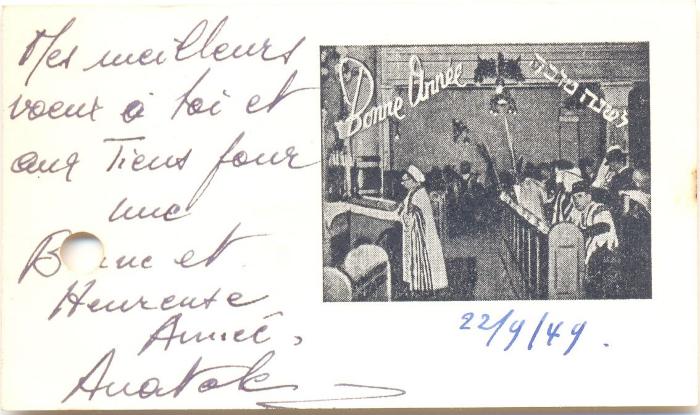 Mes meilleurs
voeux à toi et
aux Tiens pour
une
Bonne et
Heureuse
Année.
Anatole
Bonne Année
לשנה טובה
22/9/49.